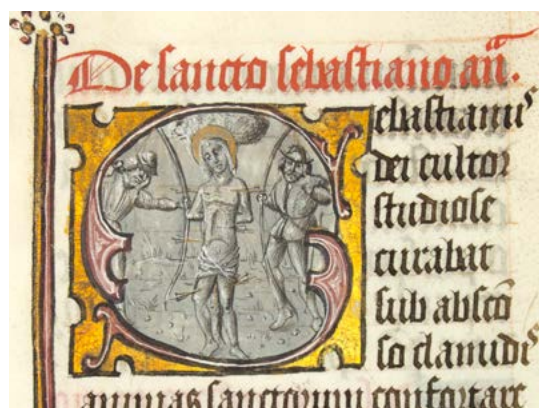 De sancto sebastiano an̄.
Sebastianus
dei cultor
studiose
curabat
sub absco͞
so clamidis
animas sanctorum confortare